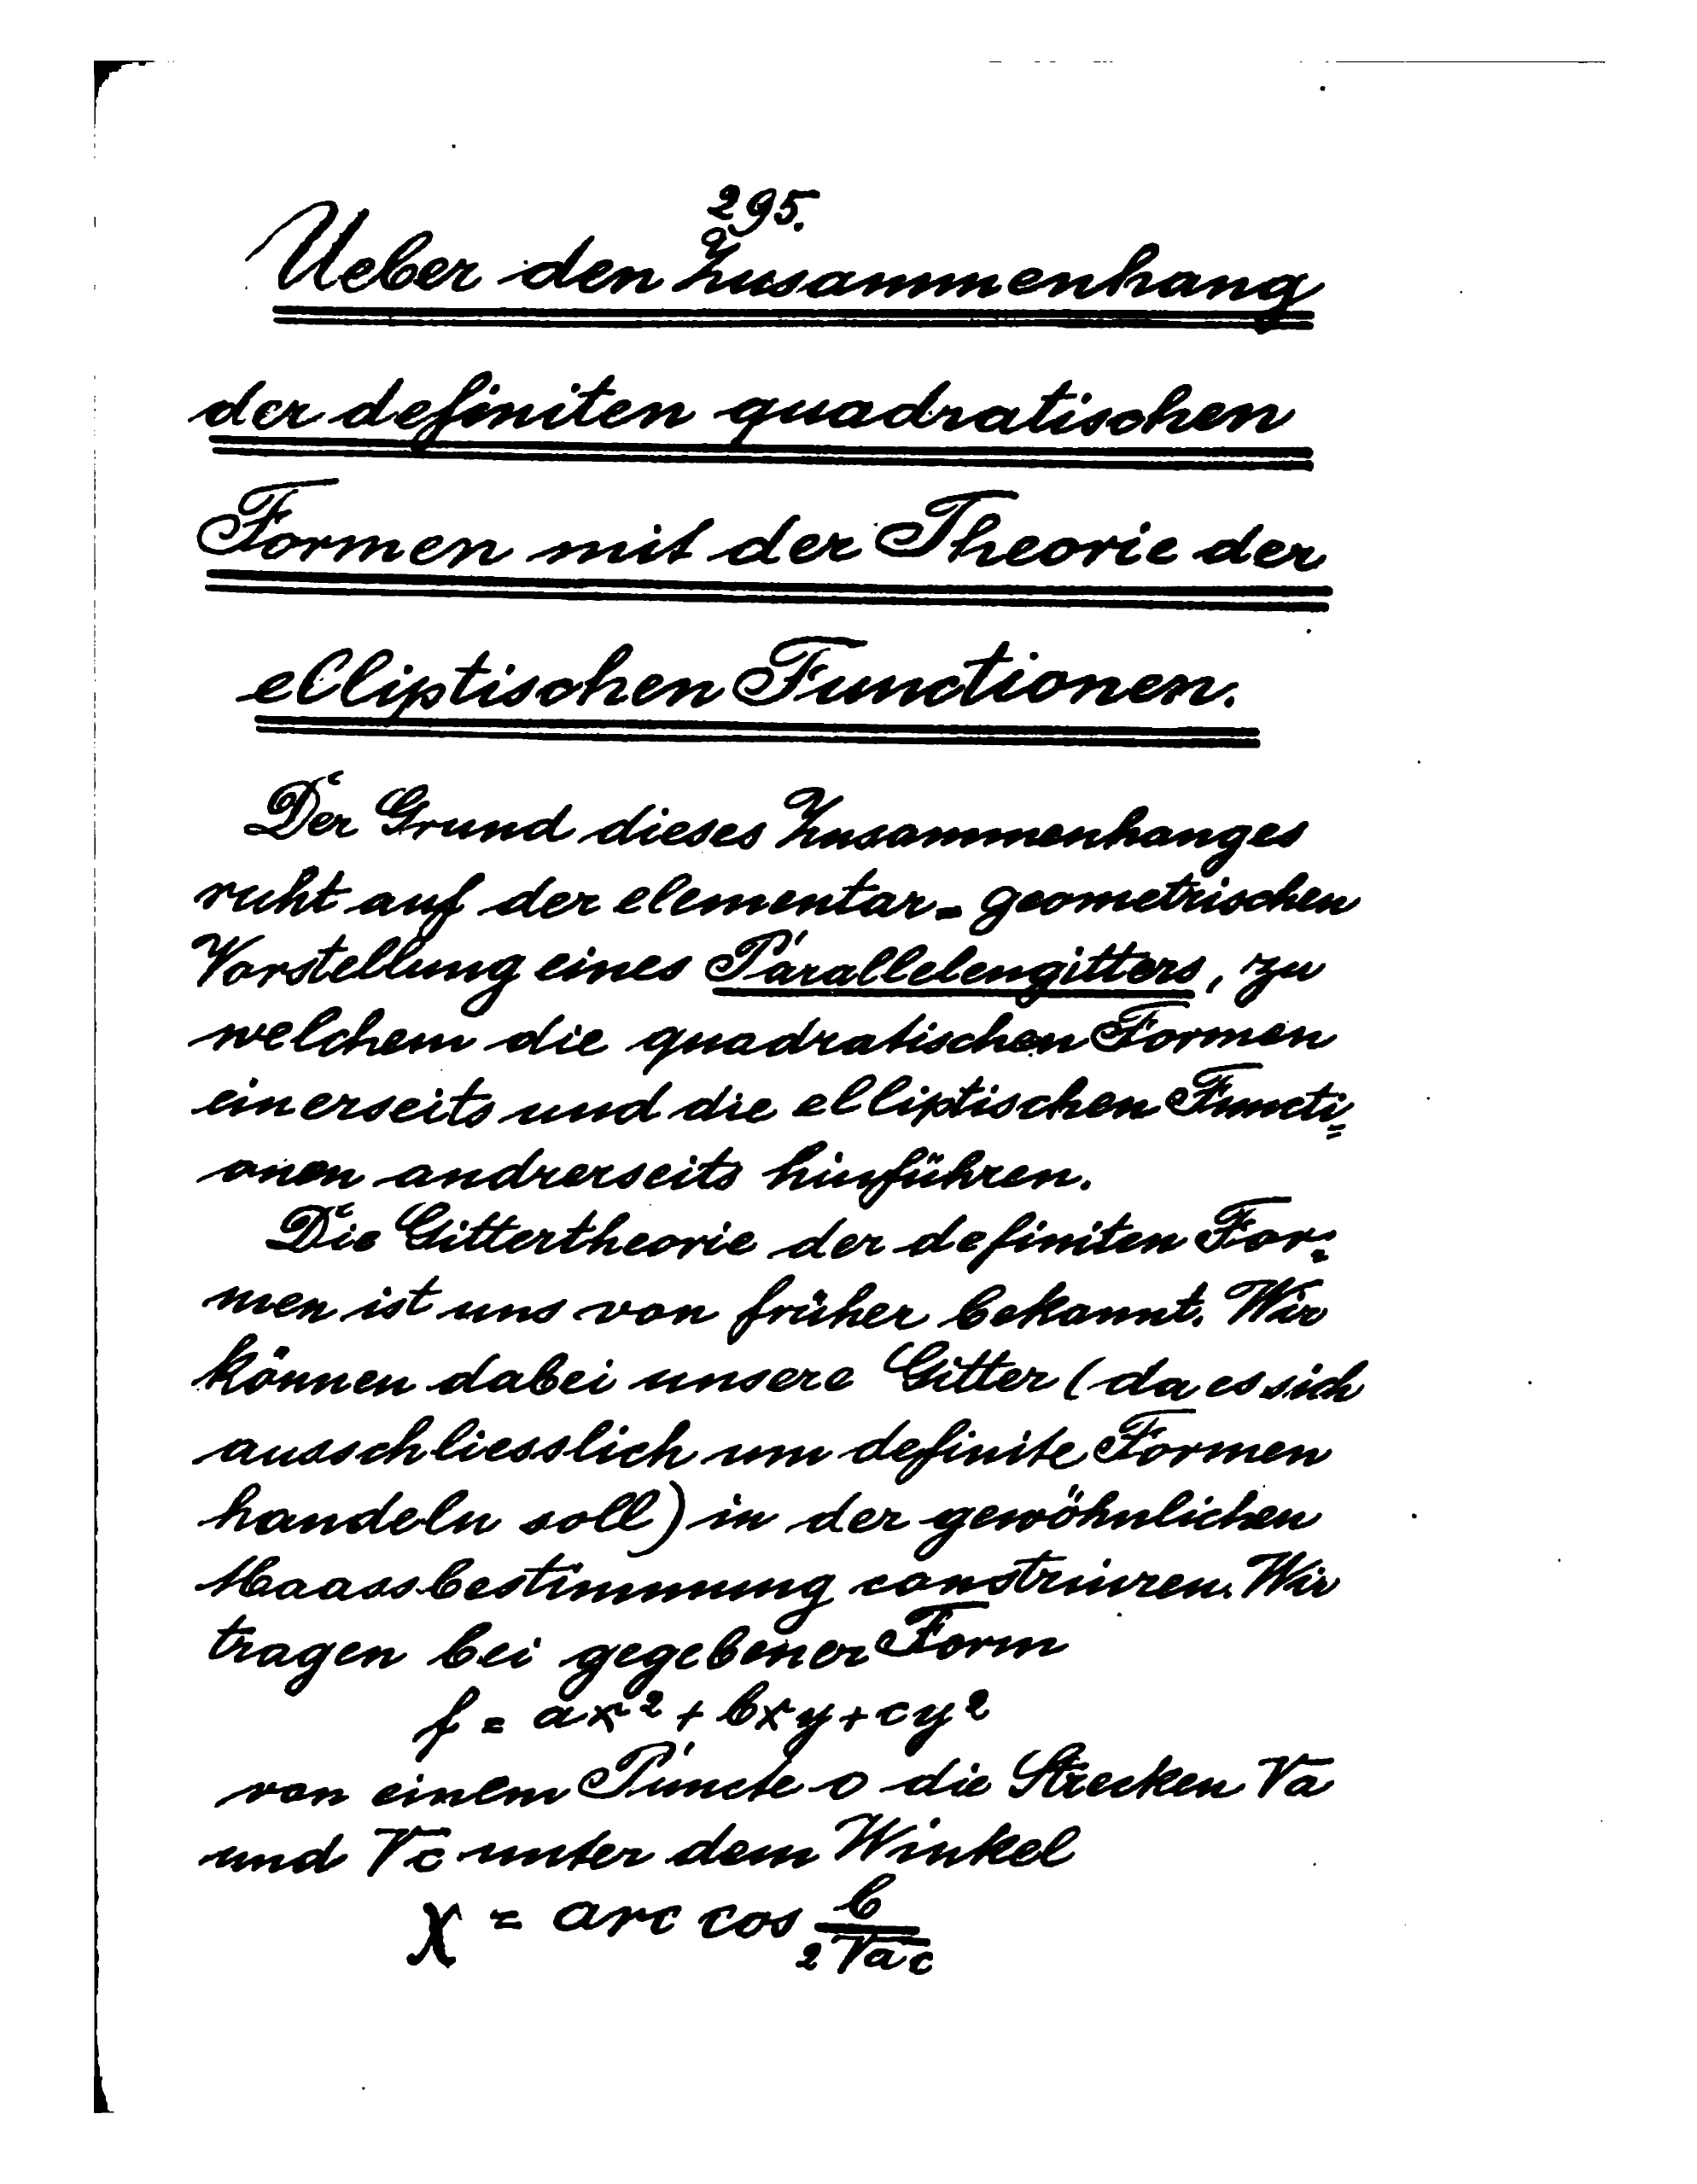 295.
Ueber den Zusammenhang
der definiten quadratischen
Formen mit der Theorie der
elliptischen Functionen.
Der Grund dieses Zusammenhanges
ruht auf der elementar-geometrischen
Vorstellung eines Parallelengitters, zu
welchem die quadratischen Formen
einerseits und die elliptischen Functi=
onen andrerseits hinführen.
Die Gittertheorie der definiten For=
men ist uns von früher bekannt. Wir
können dabei unsere Gitter (da es sich
ausschliesslich um definite Formen
handeln soll) in der gewöhnlichen
Maassbestimmung construiren. Wir
tragen bei gegebener Form
f = ax² + bxy + cy²
von einem Puncte o die Strecken √a
und √c unter dem Winkel
χ = arc cos b/2√ac